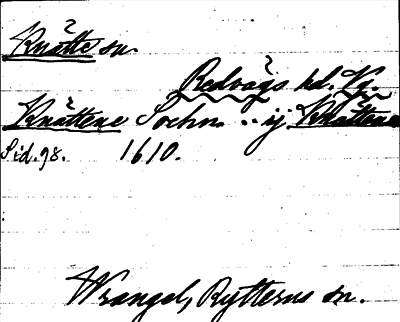 Knätte sn
Redvägs hd. Vg.
Knättene Sochn .. ij Knättene
Sid. 98. 1610.
Wrangel, Rytterns sn.